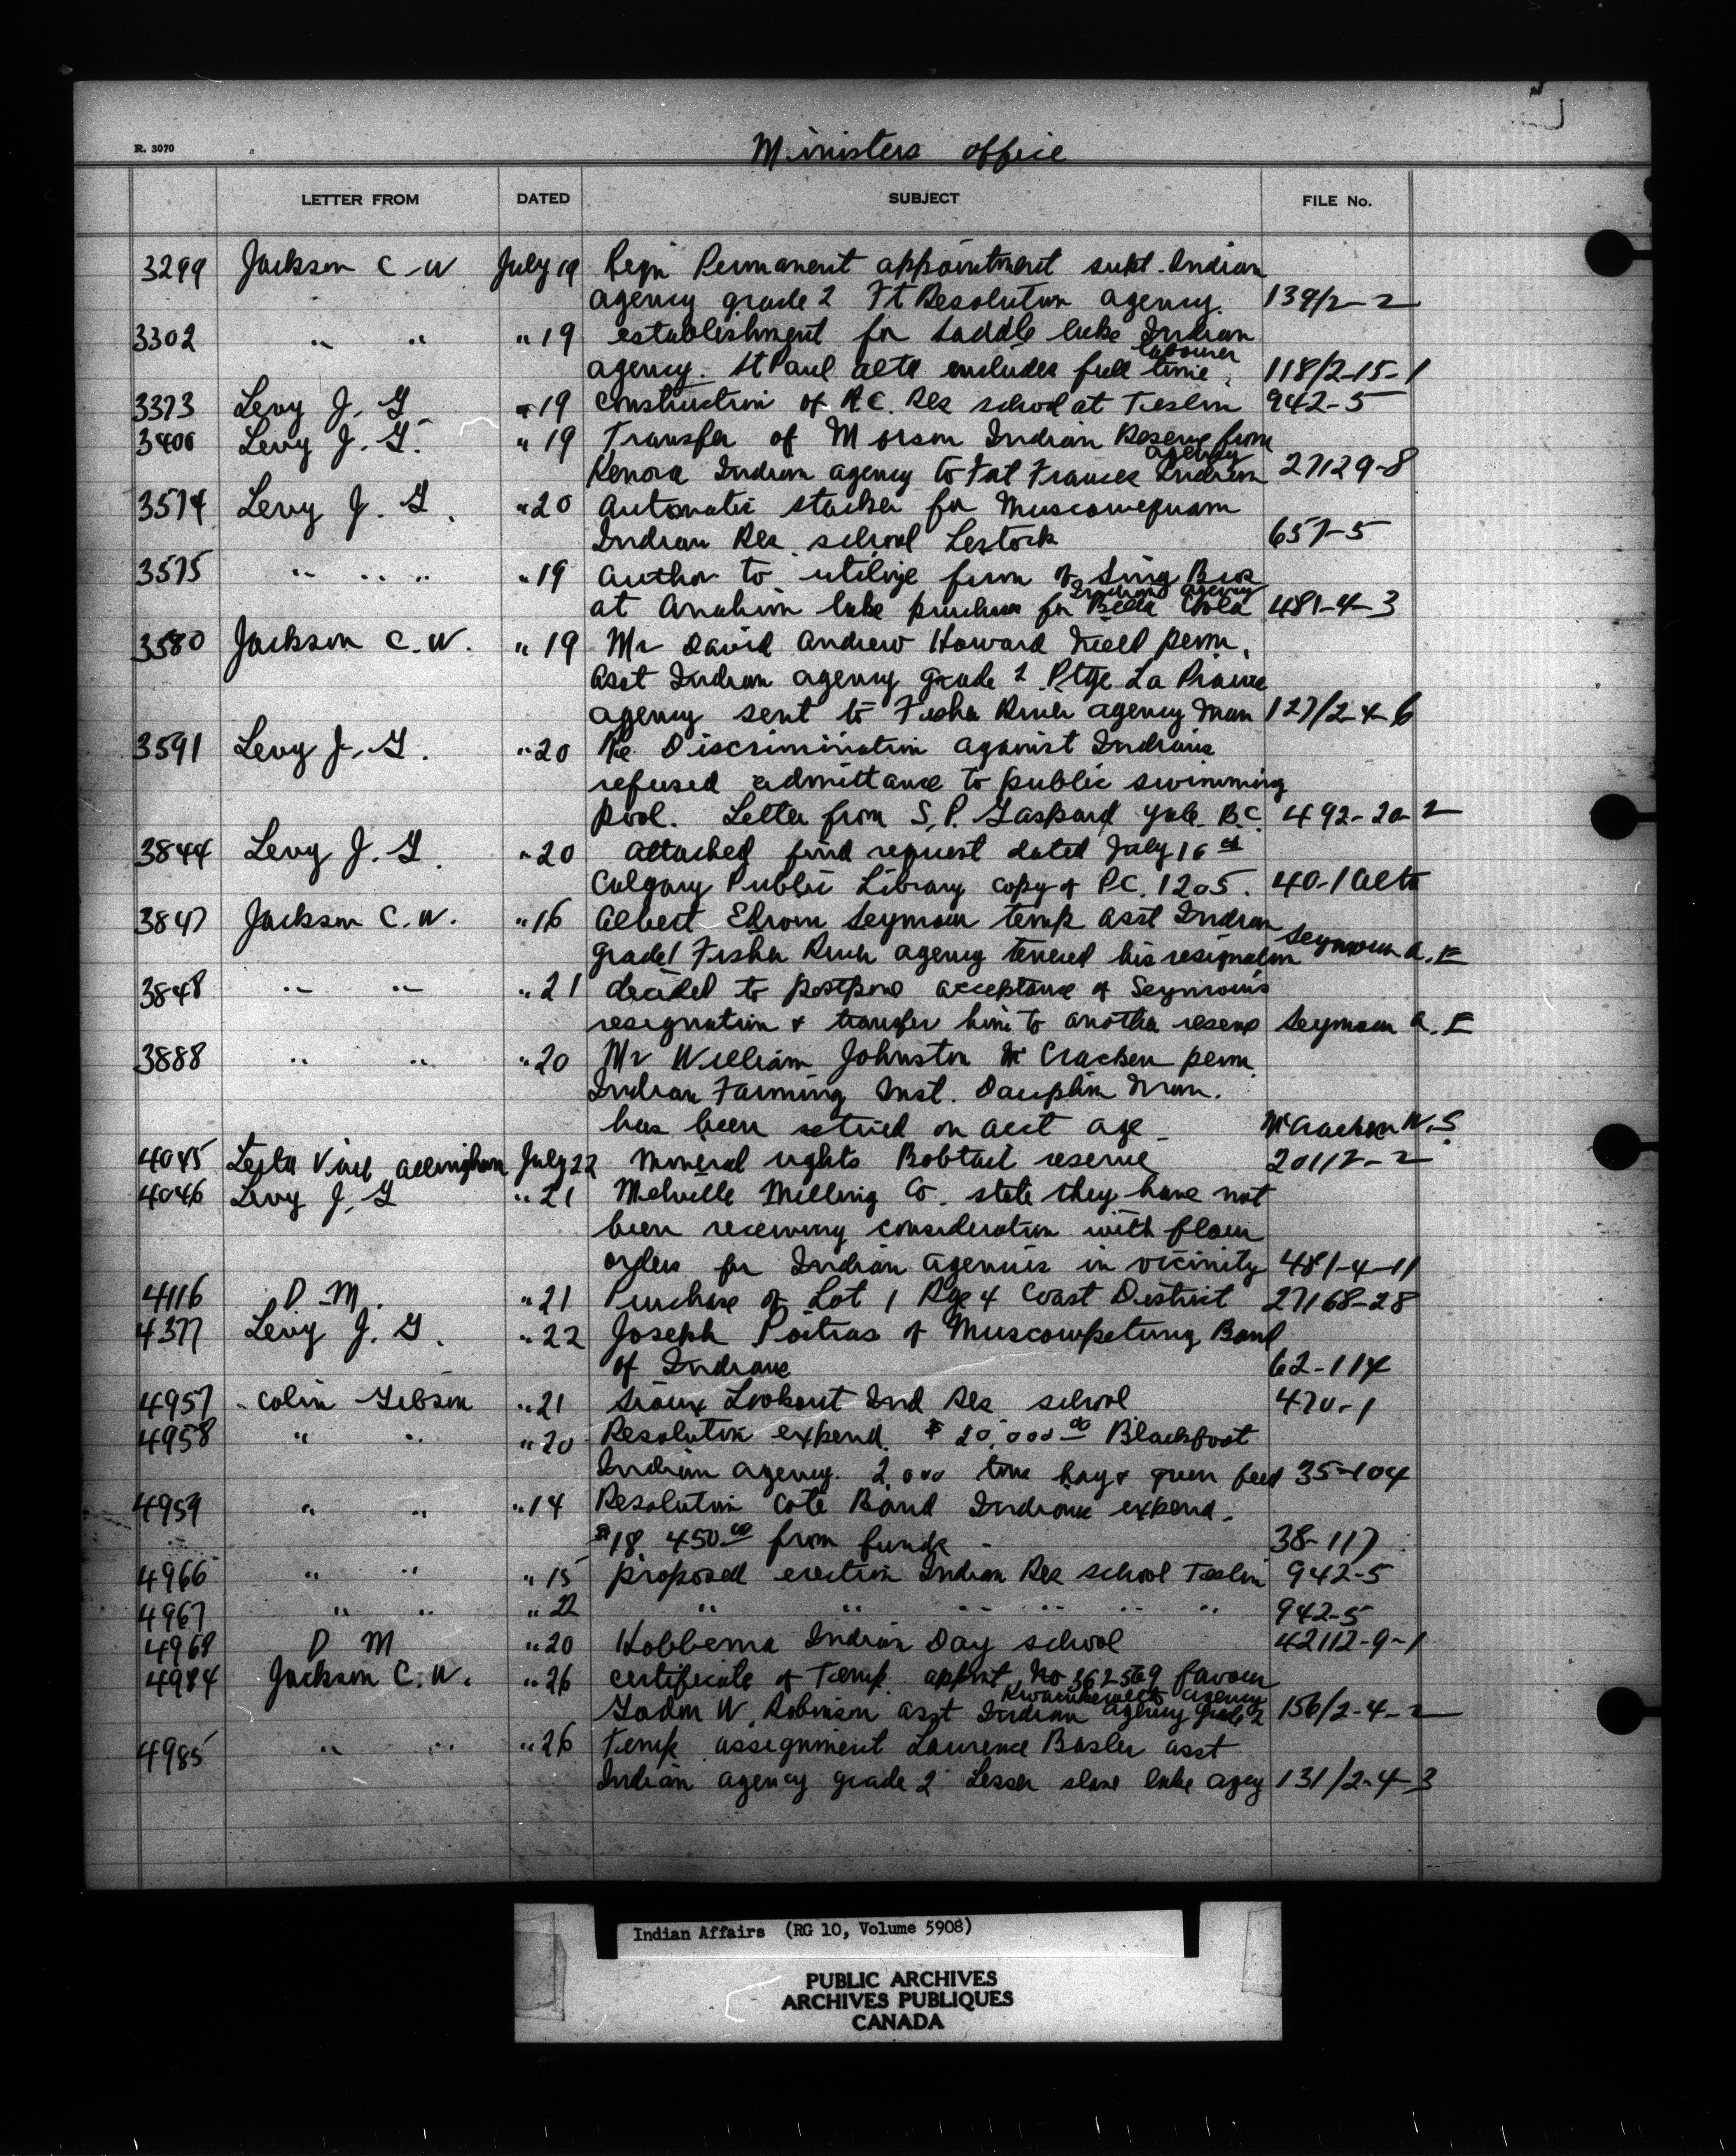 R. 3070
Ministers office
LETTER FROM DATED SUBJECT FILE No.
3299 Jackson C. W July 19 Reqn Permanent appointment supt. Indian
agency grade 2 Ft Resolution agency. 139/2-2
3302 " " " 19 establishment for Saddle lake Indian
labourer
agency. St Paul alta includes full time. 118/2-15-1
3373 Levy J. G. " 19 Construction of R.C. Res school at Teslin 942-5
3400 Levy J. G. " 19 Transfer of Morson Indian Reserve from
agency
Kenora Indian agency to Fort Frances Indian 27129-8
3574 Levy J. G. " 20 Automatic stocker for Muscowequam
Indian Res. school Lestock 657-5
3575 " " " " 19 Author to utilize firm of Sing Bros
Indian agency
at Anahim lake purchases for Bella Coola 481-4-3
3580 Jackson C. W. " 19 Mr David Andrew Howard perm.
asst Indian agency grade 2 Ptge La Prairie
agency sent to Fisher River agency Man 127/2-4-6
3591 Levy J. G. " 20 Re. Discrimination against Indians
refused admittance to public swimming
pool. Letter from S. P. Gaspard Yale B.C. 492-20-2
3844 Levy J. G. " 20 attached find request dated July 16th
Calgary Public Library copy of P.C. 1205. 40-1 alta
3847 Jackson C. W. " 16 Albert Edrom Seymour temp asst Indian
grade 1 Fisher River agency tenered his resignation Seymour A. E
3848 " " " 21 decided to postpone acceptance of Seymour's
resignation & transfer him to another reserve Seymour A. E
3888 " " " 20 Mr William Johnston McCracken perm.
Indian Farming Inst. Dauphin Man.
has been retired on acct age - McCracken W. S
4045 Allingham July 22 Mineral rights Bobtail reserve 20112-2
4046 Levy J. G " 21 Melville Milling Co. state they have not
been receiving consideration with flour
orders for Indian agencies in vicinity 481-4-11
4116 D. M. " 21 Purchase of Lot 1 Rge 4 Coast District 27168-28
4377 Levy J. G. " 22 Joseph Poitras of Muscowpetung Band
of Indians 62-114
4957 Colin Gibson " 21 Sioux Lookout Ind Res school 470-1
4958 " " " 20 Resolution expend. $ 20,000 00 Blackfoot
Indian agency. 2,000 tons hay & green feed 35-104
4959 " " " 14 Resolution Cote Band Indians expend.
$18 450 00 from funds - 38-117
4966 " " " 15 proposed erection Indian Res school Teslin 942-5
4967 " " " 22 " " " " " " 942-5
4968 D M " 20 Hobbema Indian Day school 42112-9-1
4984 Jackson C. W. " 26 certificate of Temp. appmt. No 362569 favour
Kwawkewlth agency
W. Robinson asst Indian agency grade 2 156/2-4-2
4985 " " " 26 Temp. assignment Laurence Basler asst
Indian agency grade 2 Lesser slave lake agcy 131/2-4-3
Indian Affairs (RG 10, Volume 5908)
PUBLIC ARCHIVES
ARCHIVES PUBLIQUES
CANADA